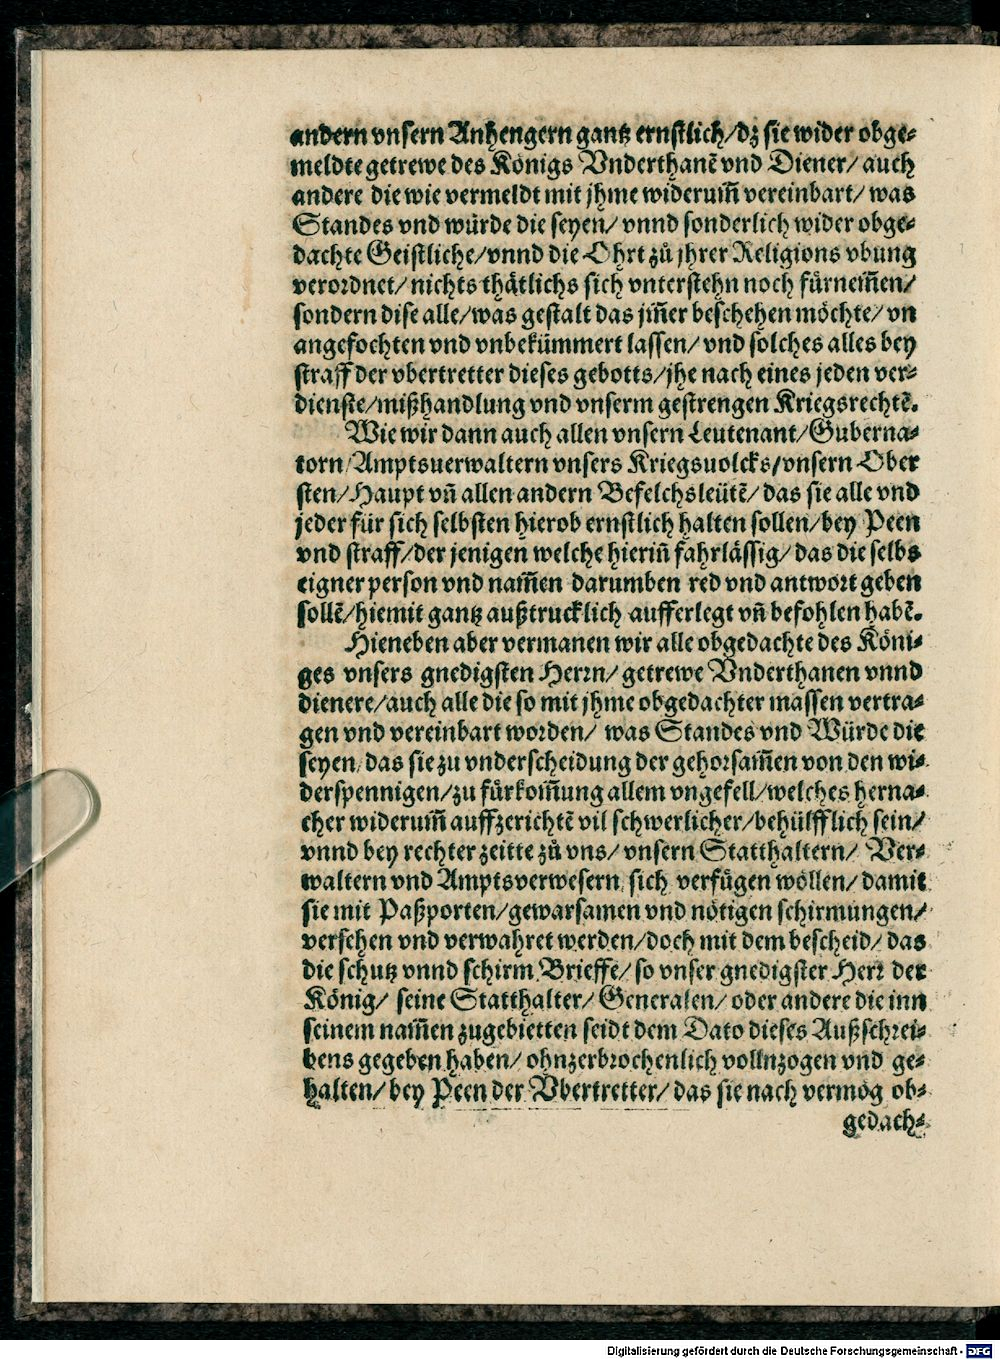 andern vnsern Anhengern gantz ernstlich/dz sie wider obge⸗
meldte getrewe des Königs Vnderthanẽ vnd Diener/ auch
andere die wie vermeldt mit jhme widerum̃ vereinbart/ was
Standes vnd würde die seyen/ vnnd sonderlich wider obge⸗
dachte Geistliche/vnnd die Ohrt zů jhrer Religions vbung
verordnet/ nichts thätlichs sich vnterstehn noch fürnem̃en/
sondern dise alle/was gestalt das jm̃er beschehen möchte/ vn
angefochten vnd vnbekümmert lassen/ vnd solches alles bey
straff der vbertretter dieses gebotts/jhe nach eines jeden ver⸗
dienste/mißhandlung vnd vnserm gestrengen Kriegsrechtẽ.
Wie wir dann auch allen vnsern Leutenant/Guberna⸗
torn/Amptsuerwaltern vnsers Kriegsuolcks/vnsern Ober
sten/Haupt vñ allen andern Befelchsleütẽ/ das sie alle vnd
jeder für sich selbsten hierob ernstlich halten sollen/bey Peen
vnd straff/der jenigen welche hieriñ fahrlässig/ das die selbs
eigner person vnd nam̃en darumben red vnd antwort geben
sollẽ/hiemit gantz außtrucklich aufferlegt vñ befohlen habẽ.
Hieneben aber vermanen wir alle obgedachte des Köni⸗
ges vnsers gnedigsten Herrn/ getrewe Vnderthanen vnnd
dienere/auch alle die so mit jhme obgedachter massen vertra⸗
gen vnd vereinbart worden/ was Standes vnd Würde die
seyen/das sie zu vnderscheidung der gehorsam̃en von den wi⸗
derspennigen/zu fürkom̃ung allem vngefell/welches herna⸗
cher widerum̃ auffzerichtẽ vil schwerlicher/behülfflich sein/
vnnd bey rechter zeitte zů vns/ vnsern Statthaltern/ Ver⸗
waltern vnd Amptsverwesern/sich verfügen wöllen/ damit
sie mit Paßporten/gewarsamen vnd nötigen schirmungen/
versehen vnd verwahret werden/doch mit dem bescheid/ das
die schutz vnnd schirm Brieffe/ so vnser gnedigster Herr der
König/ seine Statthalter/ Generalen/ oder andere die inn
seinem nam̃en zugebietten seidt dem Dato dieses Außschrei⸗
bens gegeben haben/ ohnzerbrochenlich vollnzogen vnd ge⸗
halten/ bey Peen der Vbertretter/ das sie nach vermög ob⸗
gedach⸗
Digitalisierung gefördert durch die Deutsche Forschungsgemeinschaft - DFG